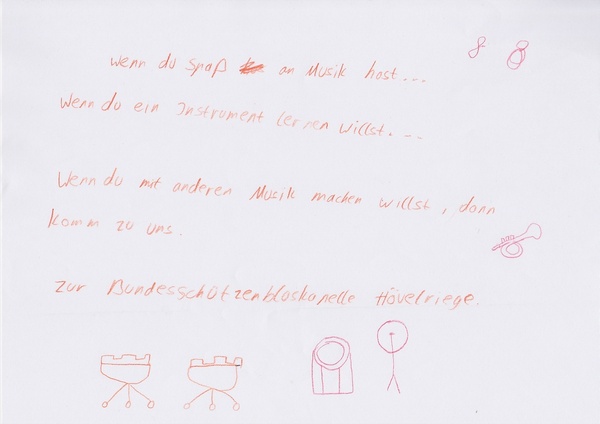 wenn du spaß an Musik host...
Wenn du ein Instrument lernen willst...
Wenn du mit anderen Musik machen willst, dann
komm zu uns.
zur Bundesschützenbloskapelle Hövelriege.